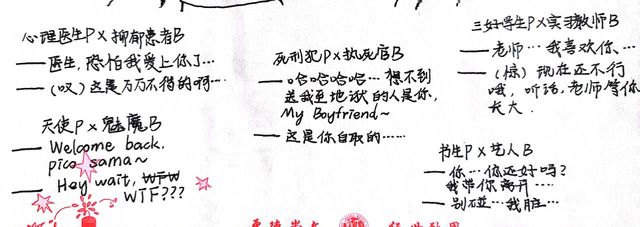 心理医生P×抑郁患者B
——医生,恐怕我爱上你了…
——(叹)这是万万不得的啊…
天使P×魅魔B
—— Welcome back,
pico sama~
—— Hey wait, WTF
WTF???
死刑犯P×执死官B
——哈哈哈哈…想不到
送我至地狱的人是你,
My Boyfriend~
——这是你自取的……
三好学生P×实习教师B
——老师…我喜欢你…
——(惊)现在还不行
哦,听话,老师等你
长大.
书生P×艺人B
——你…你还好吗?
我带你离开……
——别碰…我脏…